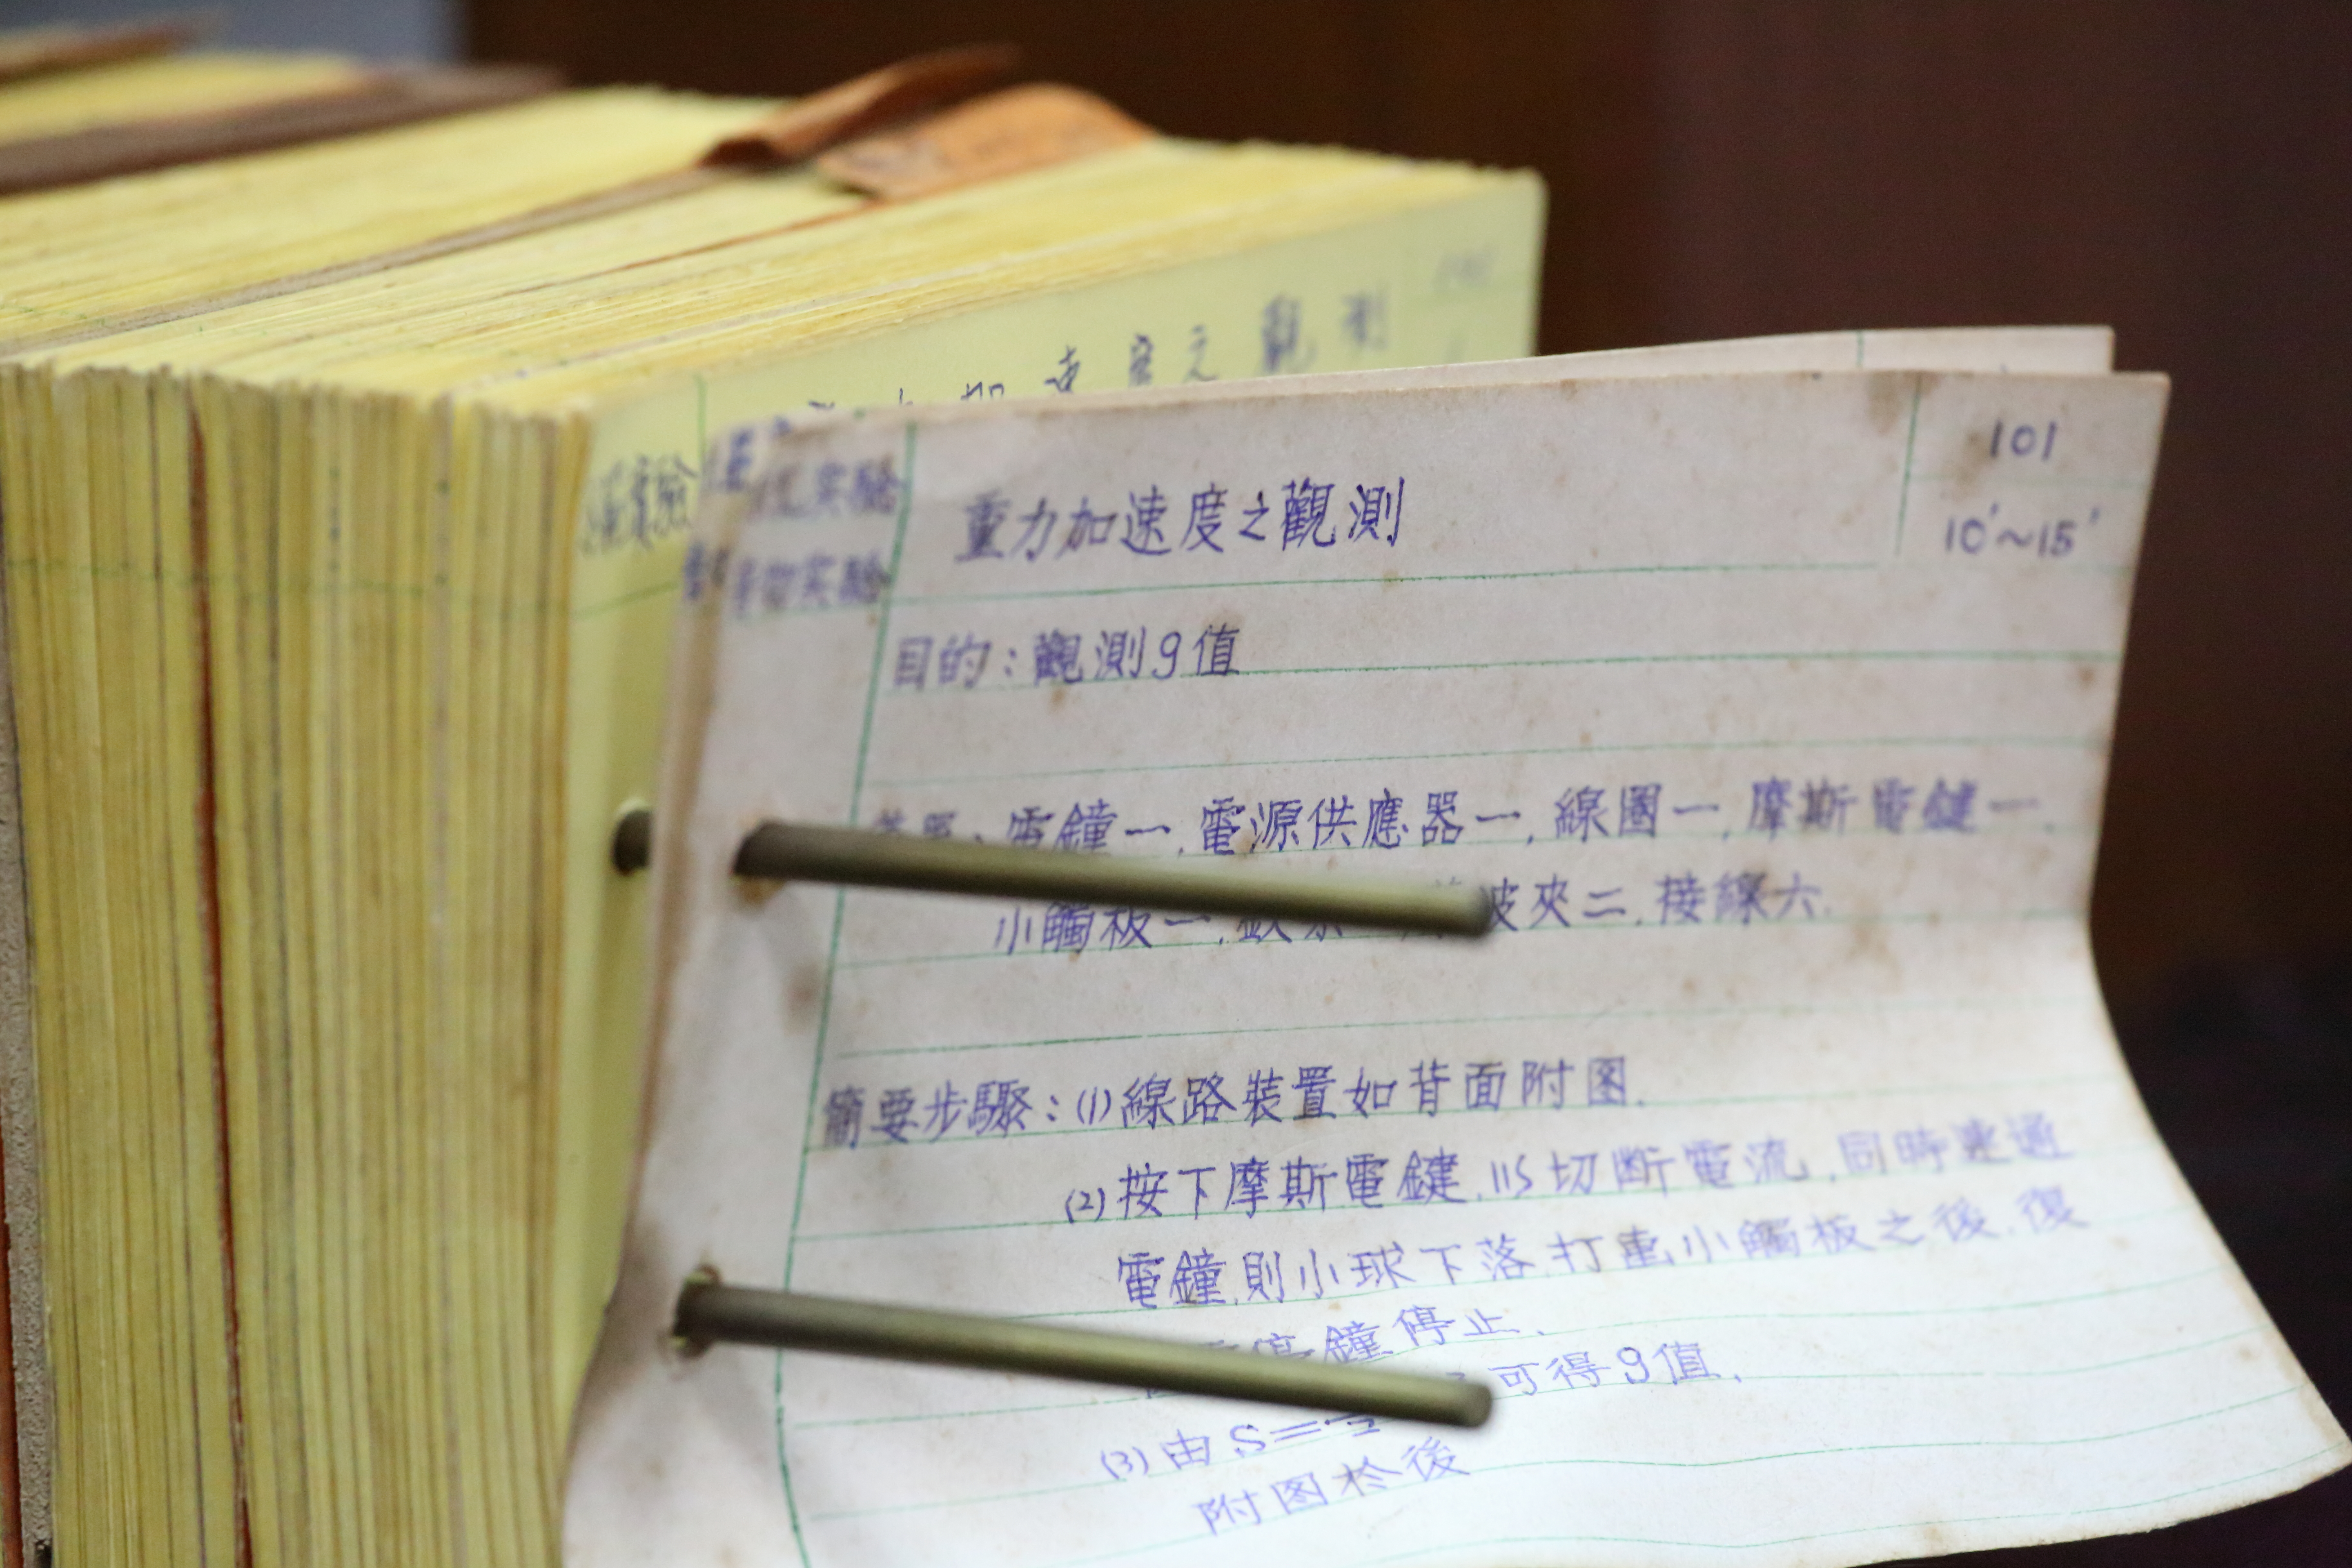 速度之觀測
實驗
實驗
普物实驗
101
10'~15'
重力加速度之觀測
目的:觀測g值
電鐘一,電源供應器一,線圈一,摩斯電鍵一.
小觸板一,波夾二,接線六.
簡要步驟:(1)線路裝置如背面附图.
(2)按下摩斯電鍵,115切断電流,同時連通
電鐘,則小球下落,打車小觸板之後,復
鐘停止.
(3)由S= 可得g值.
附图於後